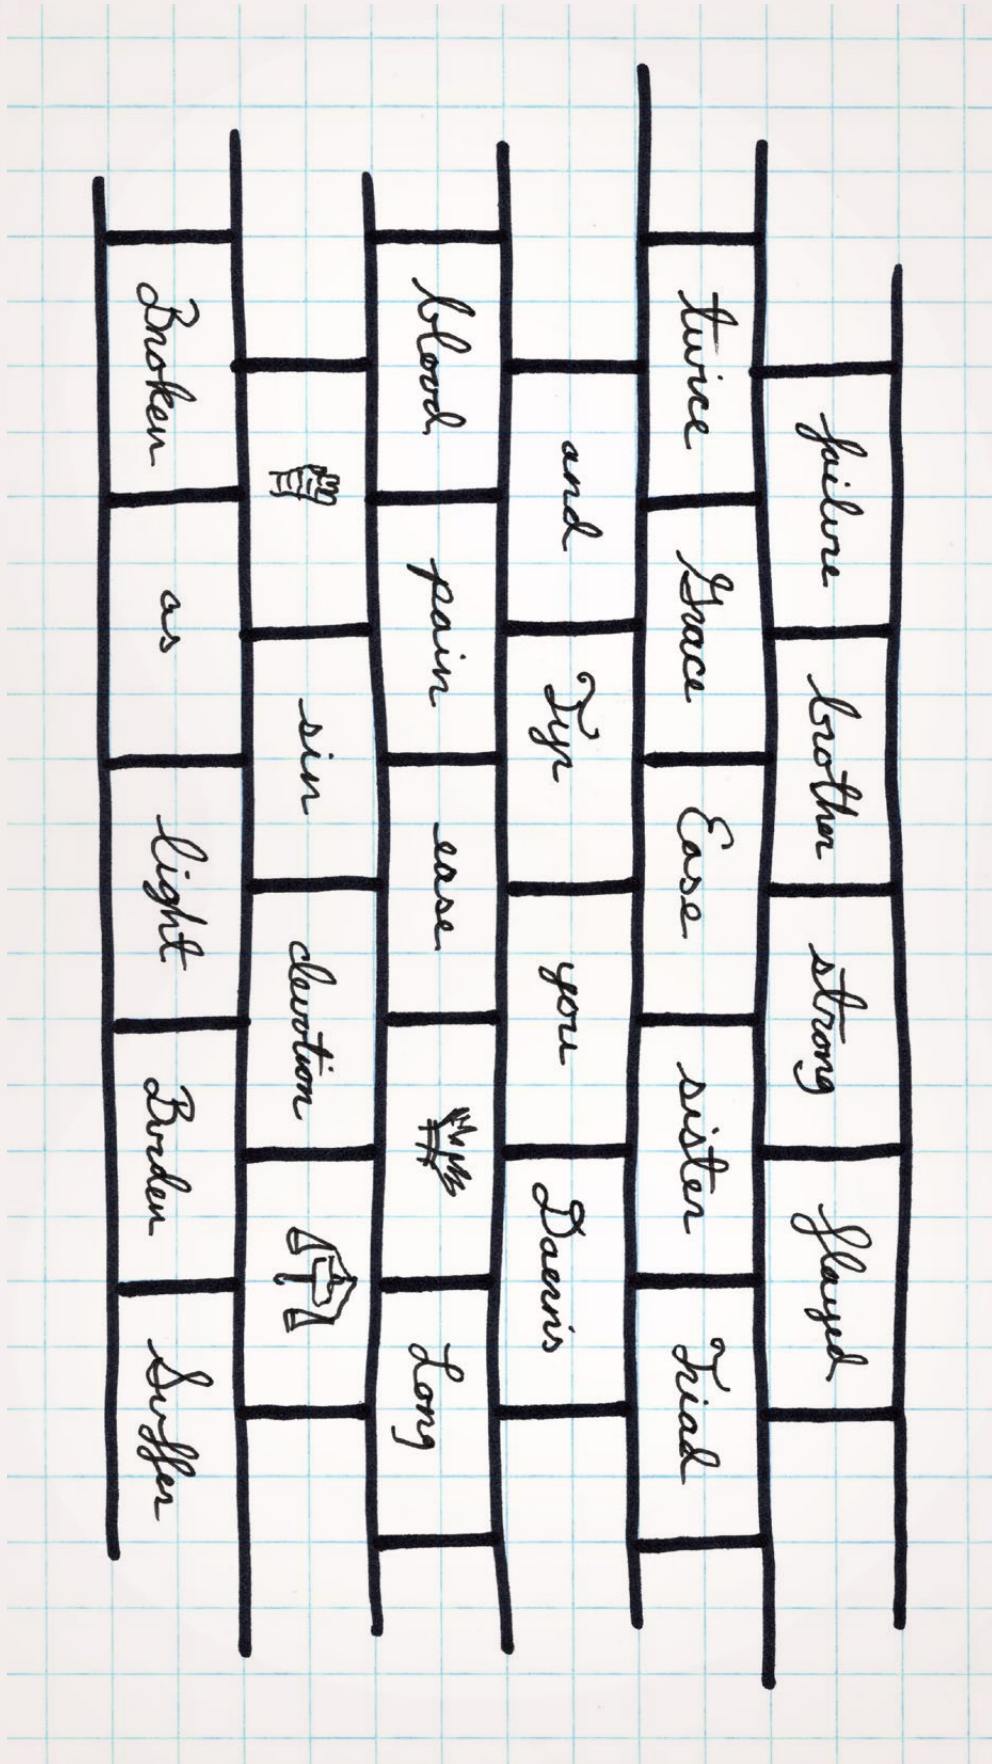 failure brother strong flayed
twice Grace Ease sister Triad
and Tyr you Daern's
blood pain ease Long
sin devotion
Broken as light Burden Suffer